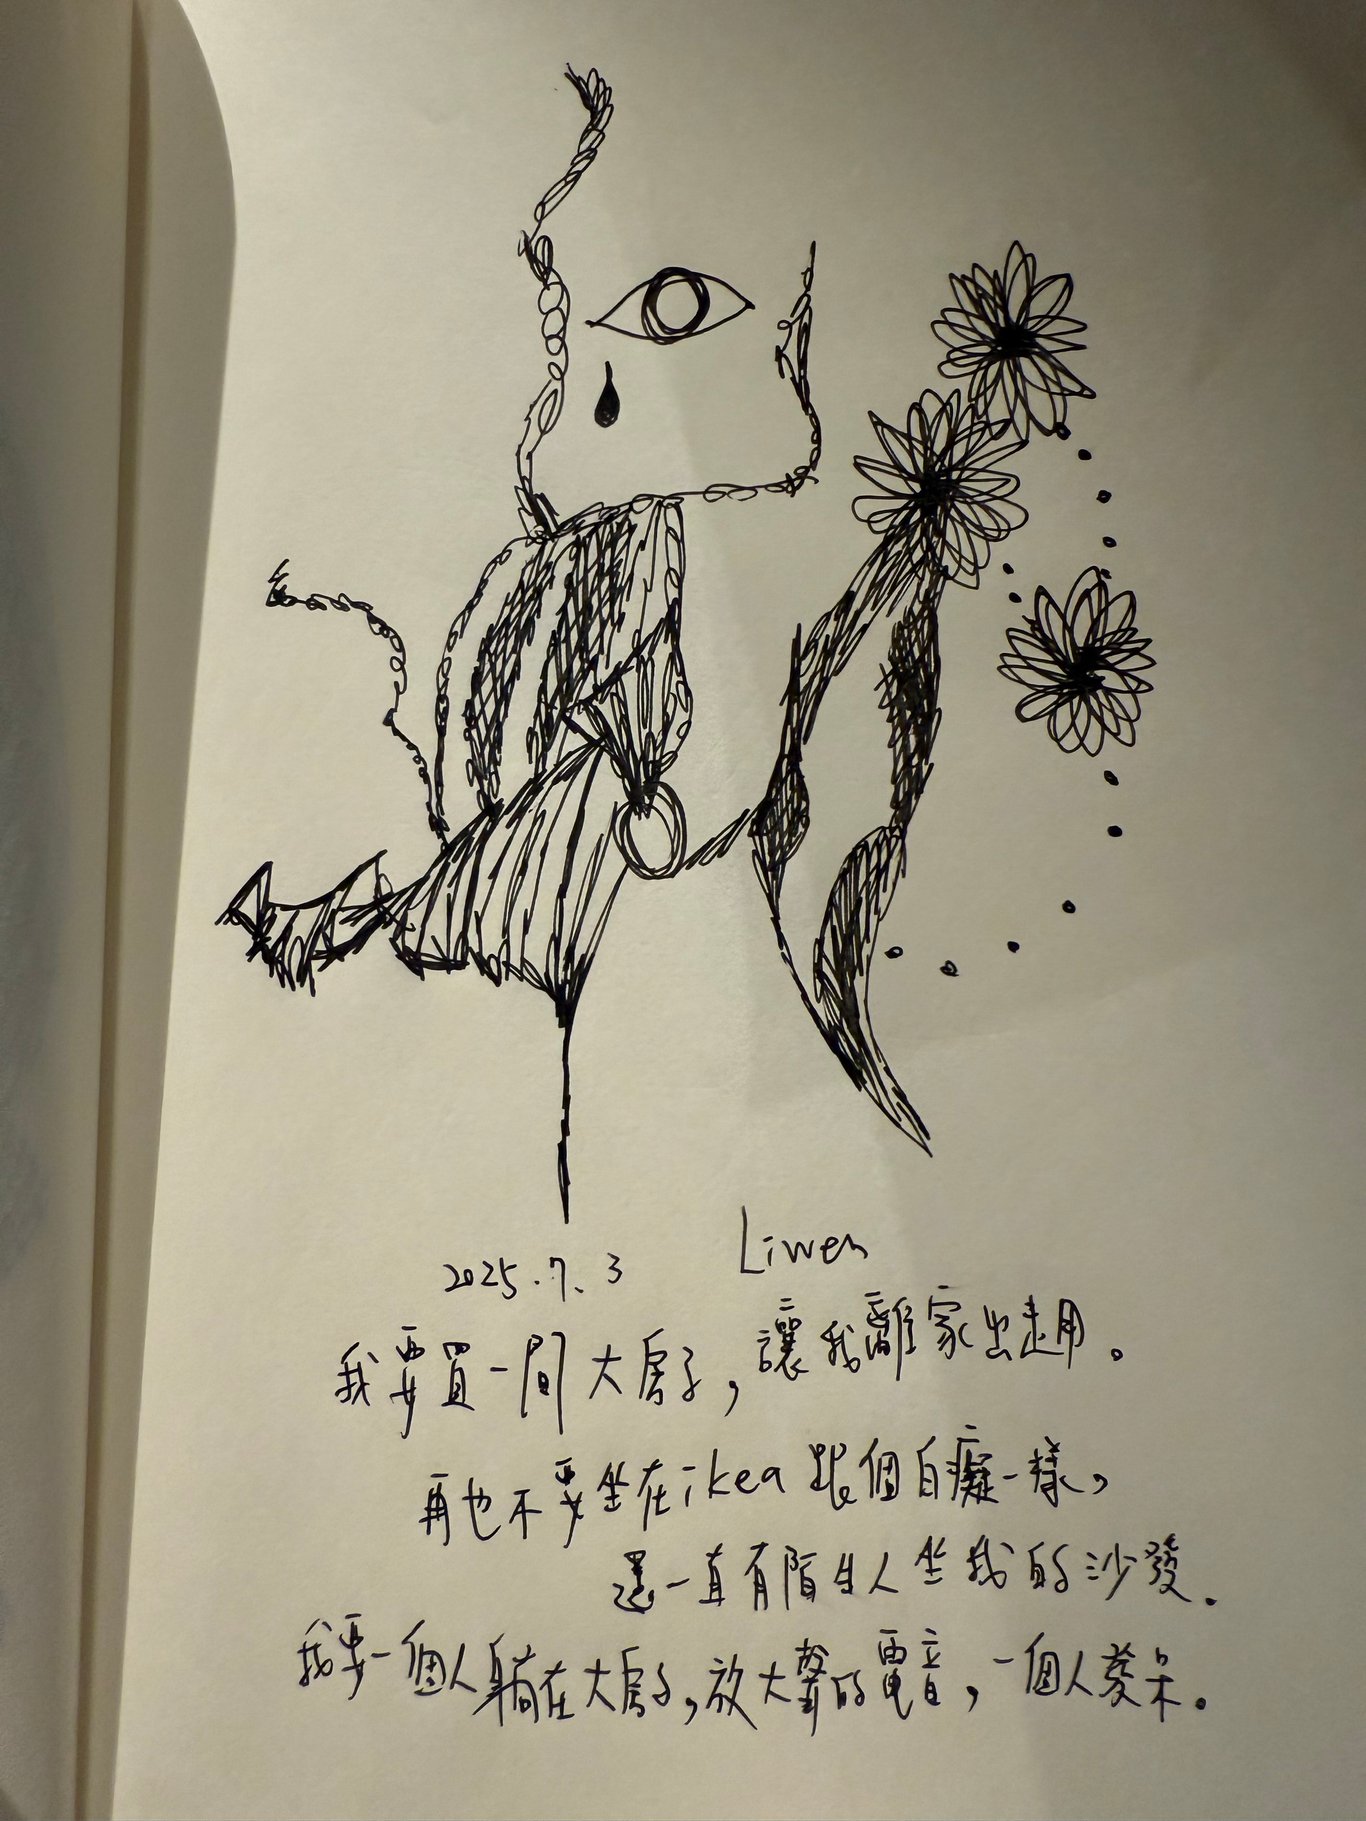 2025.7.3 Liwen
我要買一間大房子，讓我離家出走用。
再也不要坐在ikea跟個白癡一樣，
還一直有陌生人坐我的沙發。
我要一個人躺在大房子，放大聲的電音，一個人發呆。